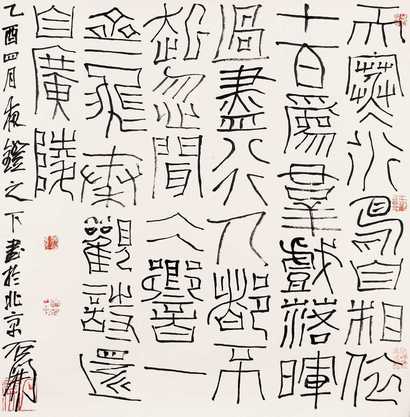 天寒水鳥自相依
十百爲羣戲落暉
過盡行人都不
起忽聞仌響一
齊飛秦觀詩還
自廣陵
乙酉四月夜鐙之下書於北京石開